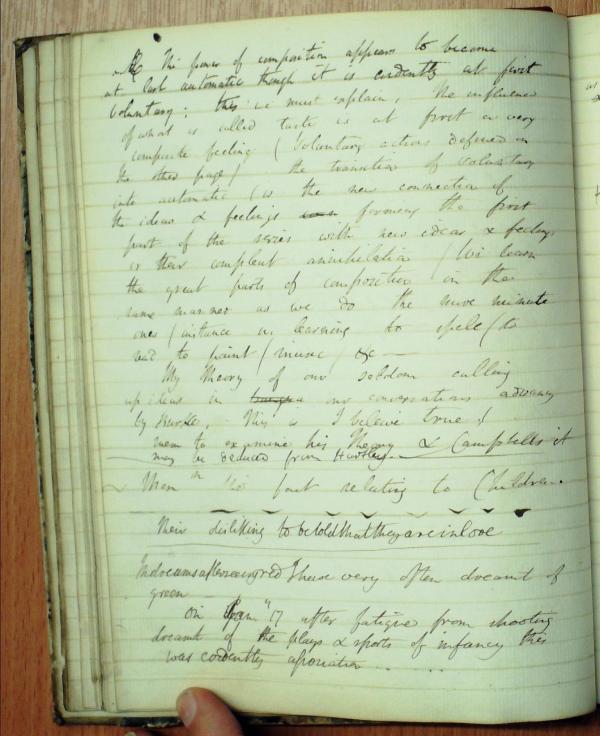 The power of composition appears to become
at last automatic though it is evidently at first
voluntary; this we must explain, The influence
of what is called taste is at first a very
composite feeling (Voluntary actions defined in
the other page) the transition of voluntary
into automatic is the new connection of
the ideas & feelings forming the first
part of the series with new ideas & feelings
or their compleat annihilation / We learn
the great parts of composition in the
same manner as we do the more minute
ones / instance in learning to spell / to
read to paint / music / &c —
My Theory of our Seldom calling
up ideas in our conversations advancd
by Burke, This is I believe true!
mem to examine his Theory & Campbells it
may be deduced from Hartley
Mem the fact relating to Children
Their disliking to be told that they are in love
In dreams after seeing red I have very often dreamt of
green
On Jan 17 after fatigue from shooting
dreamt of the plays & sports of infancy this
was evidently association